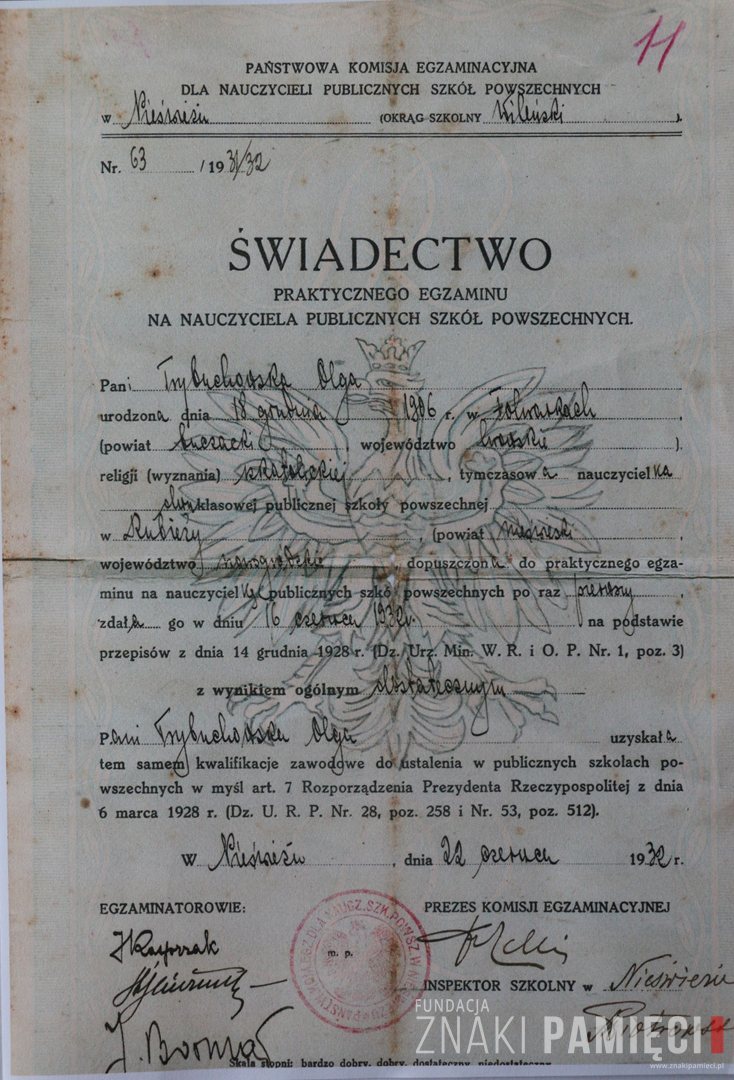 11
PAŃSTWOWA KOMISJA EGZAMINACYJNA
DLA NAUCZYCIELI PUBLICZNYCH SZKÓŁ POWSZECHNYCH
w Nieświeżu (OKRĄG SZKOLNY Wileński ).
Nr. 63 / 1931/32
ŚWIADECTWO
PRAKTYCZNEGO EGZAMINU
NA NAUCZYCIELA PUBLICZNYCH SZKÓŁ POWSZECHNYCH.
Pani Trybuchowska Olga
urodzona dnia 18 grudnia 1906 r. w Folwarkach
(powiat buczacki , województwo ).
religji (wyznania) , tymczasowa nauczycielka
klasowej publicznej szkoły powszechnej
w Rubieży , (powiat nieświeski ,
województwo nowogródzkie , dopuszczona do praktycznego egza-
minu na nauczycielkę publicznych szkół powszechnych po raz pierwszy ,
zdała go w dniu 16 czerwca 1932 r. na podstawie
przepisów z dnia 14 grudnia 1928 r. (Dz. Urz. Min. W. R. i O. P. Nr. 1, poz. 3)
z wynikiem ogólnym dostatecznym
Pani Trybuchowska Olga uzyskała
tem samem kwalifikacje zawodowe do ustalenia w publicznych szkołach po-
wszechnych w myśl art. 7 Rozporządzenia Prezydenta Rzeczypospolitej z dnia
6 marca 1928 r. (Dz. U. R. P. Nr. 28, poz. 258 i Nr. 53, poz. 512).
W Nieświeżu , dnia 22 czerwca 1932 r.
EGZAMINATOROWIE: PREZES KOMISJI EGZAMINACYJNEJ
m. p.
INSPEKTOR SZKOLNY w Nieświeżu
FUNDACJA
ZNAKI PAMIĘCI
www.znakipamieci.pl
Skala stopni: bardzo dobry, dobry, dostateczny, niedostateczny.